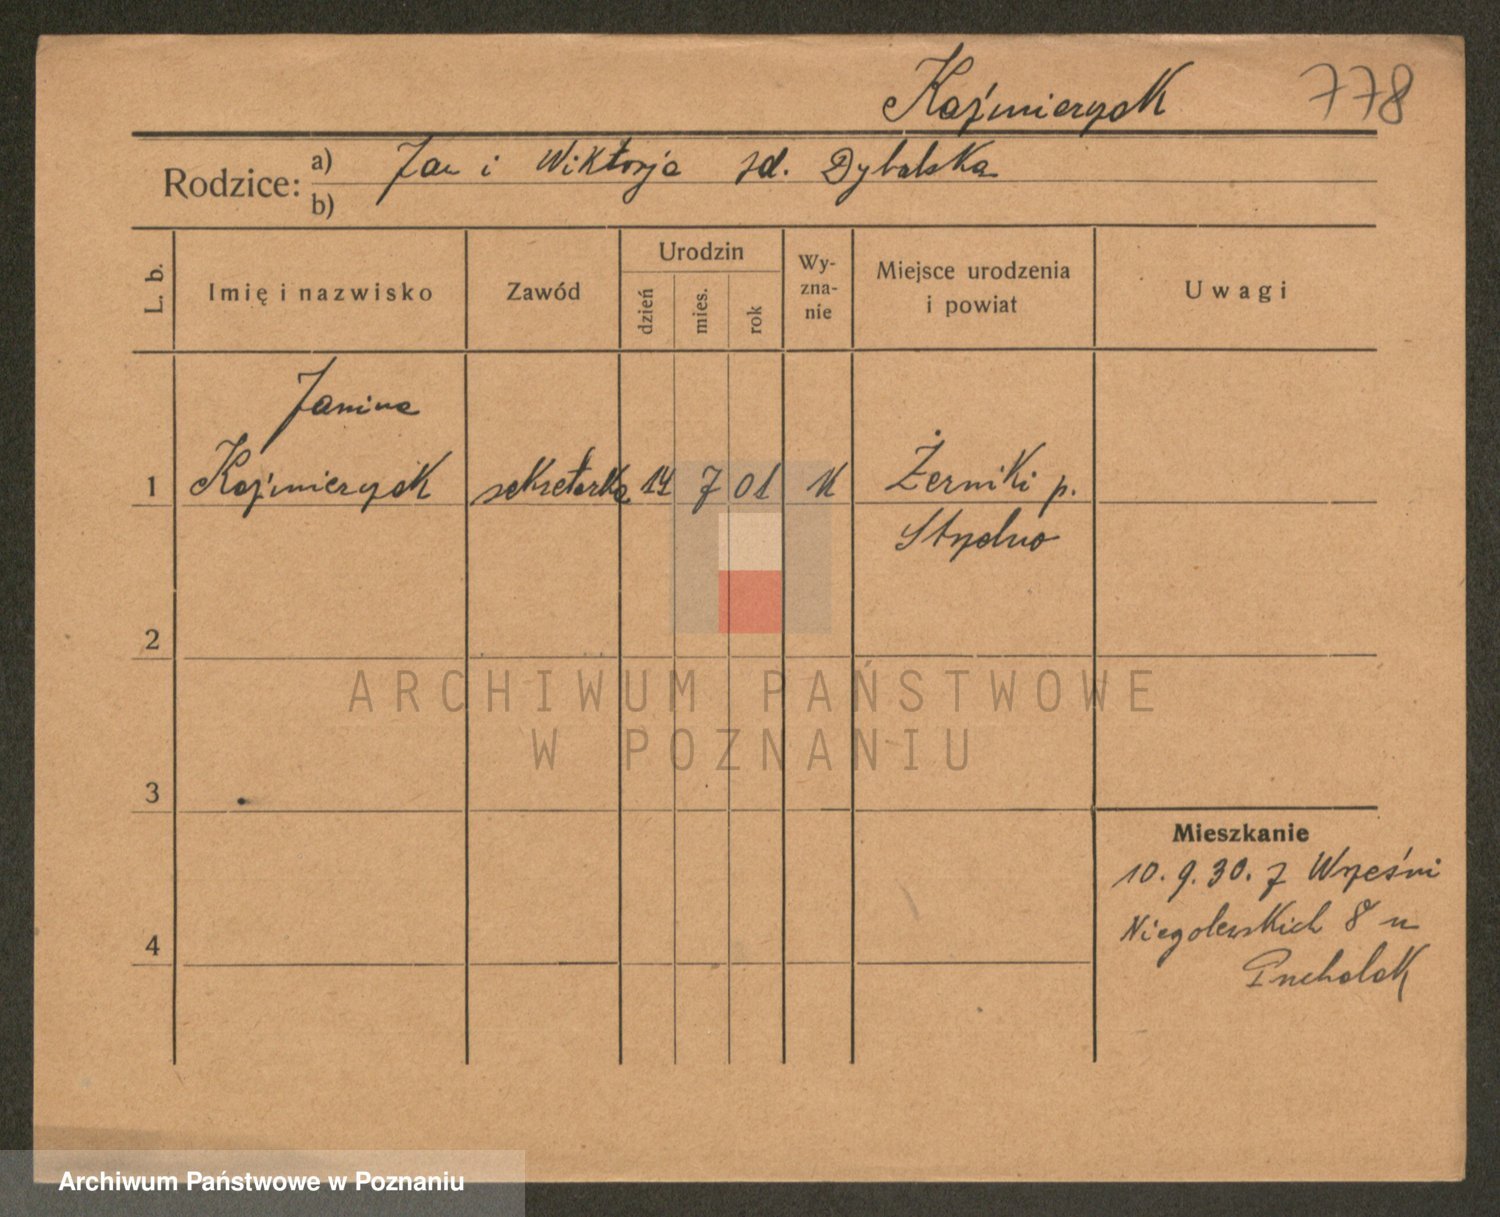 Kaźmierczak 778
Rodzice: a) Jan i Wiktorja zd. Dybalska
b)
L. b. Imię i nazwisko Zawód Urodzin dzień mies. rok Wy-zna-nie Miejsce urodzenia i powiat Uwagi
Janina
1 Kaźmierczak sekretarka 14 7 01 k Żerniki p.
Strzelno
2
ARCHIWUM PAŃSTWOWE
W POZNANIU
3
Mieszkanie
10. 9. 30. z Wrześni
4 Niegolewskich 8 u
Puchalak
Archiwum Państwowe w Poznaniu